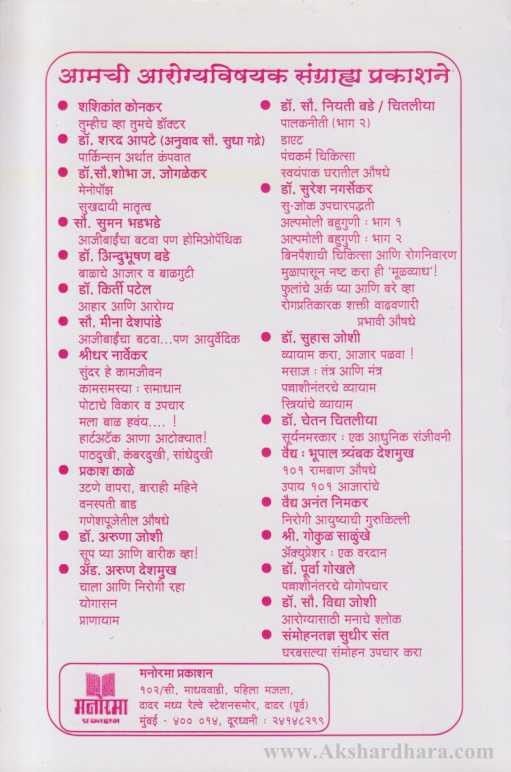 आमची आरोग्यविषयक संग्राह्य प्रकाशने
● शशिकांत कोनकर
तुम्हीच व्हा तुमचे डॉक्टर
● डॉ. शरद आपटे (अनुवाद सौ. सुधा गद्रे)
पार्किन्सन अर्थात कंपवात
● डॉ.सौ.शोभा ज. जोगळेकर
मेनोपॉझ
सुखदायी मातृत्व
● सौ. सुमन भडभडे
आजीबाईंचा बटवा पण होमिओपॅथिक
● डॉ. अिन्दुभूषण बडे
बाळाचे आजार व बाळगुटी
● डॉ. किर्ती पटेल
आहार आणि आरोग्य
● सौ. मीना देशपांडे
आजीबाईंचा बटवा...पण आयुर्वेदिक
● श्रीधर नार्वेकर
सुंदर हे कामजीवन
कामसमस्या : समाधान
पोटाचे विकार व उपचार
मला बाळ हवंय.... !
हार्टअटॅक आणा आटोक्यात!
पाठदुखी, कंबरदुखी, सांधेदुखी
● प्रकाश काळे
उटणे वापरा, बाराही महिने
वनस्पती बाड
गणेशपूजेतील औषधे
● डॉ. अरुणा जोशी
सूप प्या आणि बारीक व्हा!
● अॅड. अरुण देशमुख
चाला आणि निरोगी रहा
योगासन
प्राणायाम
● डॉ. सौ. नियती बडे / चितलीया
पालकनीती (भाग २)
डाएट
पंचकर्म चिकित्सा
स्वयंपाक घरातील औषधे
● डॉ. सुरेश नगर्सेकर
सु-जोक उपचारपद्धती
अल्पमोली बहुगुणी : भाग १
अल्पमोली बहुगुणी : भाग २
बिनपैशाची चिकित्सा आणि रोगनिवारण
मुळापासून नष्ट करा ही 'मूळव्याध'!
फुलांचे अर्क प्या आणि बरे व्हा
रोगप्रतिकारक शक्ती वाढवणारी
प्रभावी औषधे
● डॉ. सुहास जोशी
व्यायाम करा, आजार पळवा !
मसाज : तंत्र आणि मंत्र
पन्नाशीनंतरचे व्यायाम
स्त्रियांचे व्यायाम
● डॉ. चेतन चितलीया
सूर्यनमस्कार : एक आधुनिक संजीवनी
● वैद्य : भूपाल त्र्यंबक देशमुख
१०१ रामबाण औषधे
उपाय १०१ आजारांचे
● वैद्य अनंत निमकर
निरोगी आयुष्याची गुरुकिल्ली
● श्री. गोकुळ साळुंखे
अॅक्युप्रेशर : एक वरदान
● डॉ. पूर्वा गोखले
पन्नाशीनंतरचे योगोपचार
● डॉ. सौ. विद्या जोशी
आरोग्यासाठी मनाचे श्लोक
● संमोहनतज्ञ सुधीर संत
घरबसल्या संमोहन उपचार करा
मनोरमा
प्रकाशन
मनोरमा प्रकाशन
१०२/सी, माधववाडी, पहिला मजला,
दादर मध्य रेल्वे स्टेशनसमोर, दादर (पूर्व)
मुंबई - ४०० ०१४, दूरध्वनी : २४१४८२९९
www.Akshardhara.com